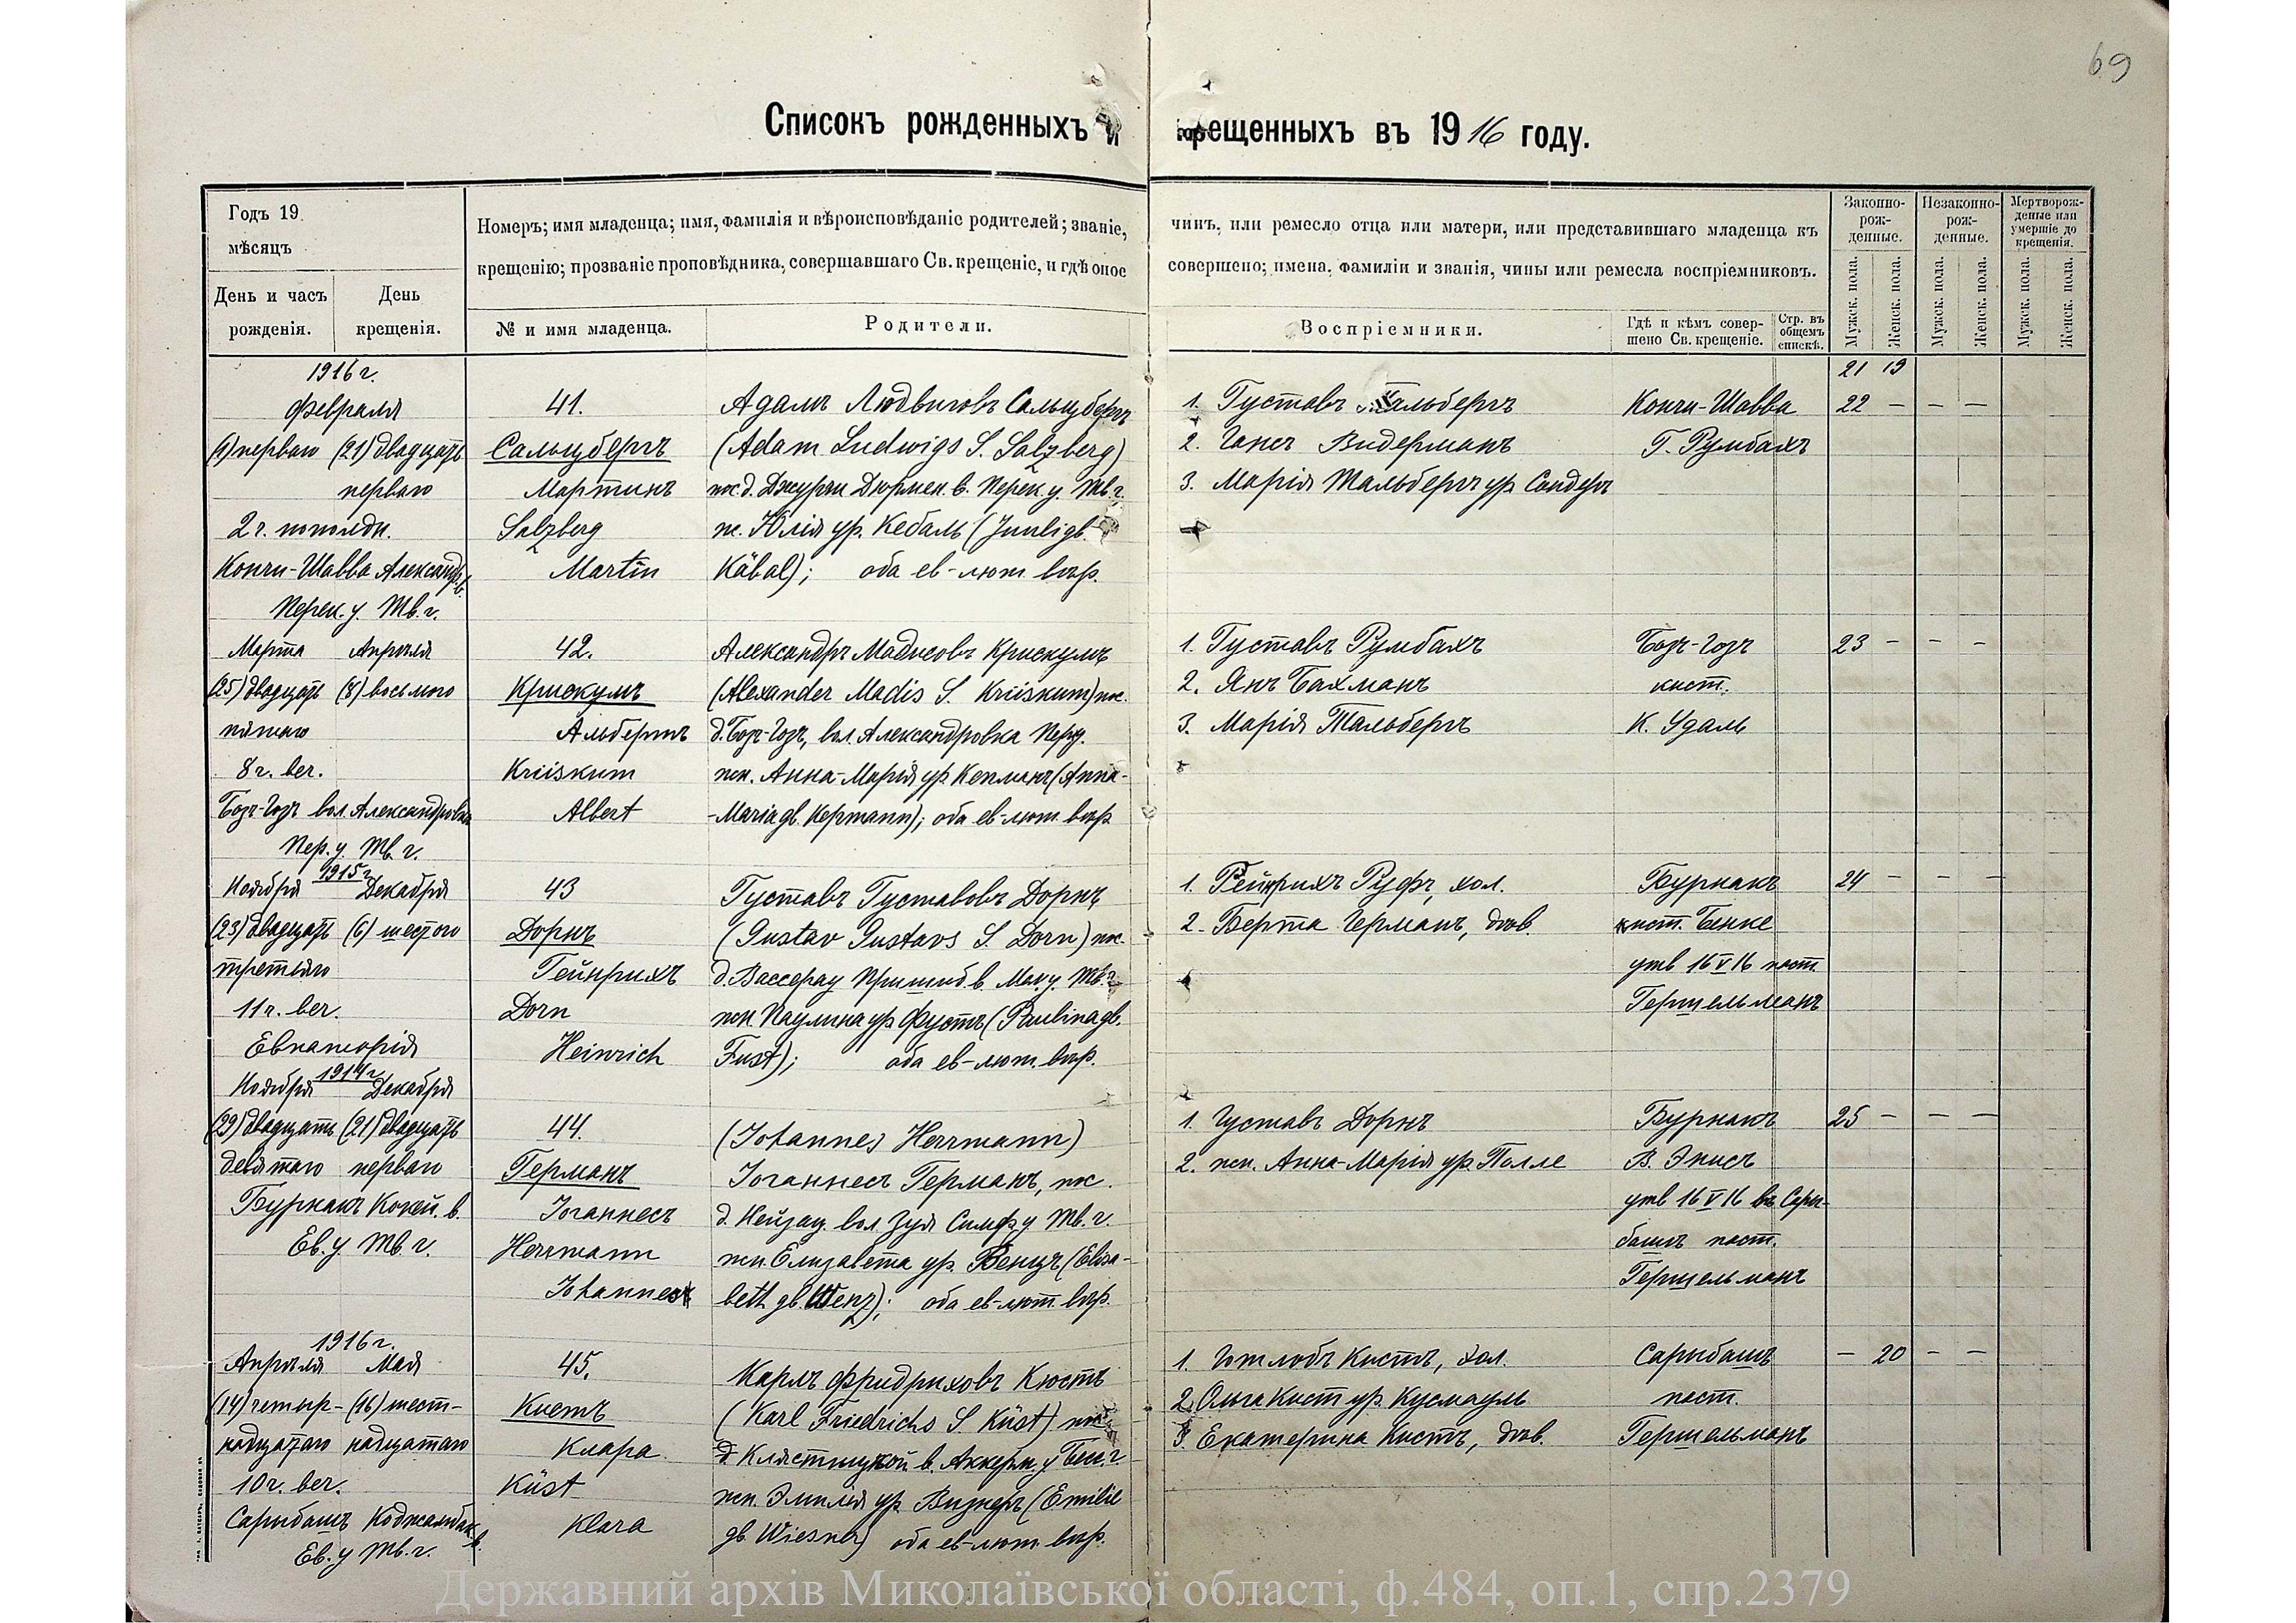 69
Списокъ рожденныхъ и крещенныхъ въ 1916 году.
Годъ 19
мѣсяцъ
День и часъ рожденія.
День крещенія.
Номеръ; имя младенца; имя, фамилія и вѣроисповѣданіе родителей; званіе, чинъ, или ремесло отца или матери, или представившаго младенца къ
крещенію; прозваніе проповѣдника, совершавшаго Св. крещеніе, и гдѣ оное совершено; имена, фамиліи и званія, чины или ремесла воспріемниковъ.
№ и имя младенца.
Родители.
Воспріемники.
Гдѣ и кѣмъ совершено Св. крещеніе.
Стр. въ общемъ спискѣ.
Законно-рож-денные.
Незаконно-рож-денные.
Мертворож-денные или умершіе до крещенія.
Мужск. пола.
Женск. пола.
Мужск. пола.
Женск. пола.
Мужск. пола.
Женск. пола.
21 19
1916 г.
Февраля
(1) перваго (21) двадцать
перваго
2 ч. пополдн.
Кончи-Шавва Александр. в.
Перек. у. Тв. г.
41.
Сальцбергъ
Мартинъ
Salzberg
Martin
Адамъ Людвиговъ Сальцбергъ
(Adam Ludwigs S. Salzberg)
пос. д. Джурчи Дюрмен. в. Перек. у. Тв. г.
ж. Юлія ур. Кебаль (Juuli gb.
Käbal); оба ев-лют. вѣр.
1. Густавъ Тальбергъ
2. Гансъ Видерманъ
3. Марія Тальбергъ ур. Сандеръ
Кончи-Шавва
Г. Румбахъ
22 – – –
Марта Апрѣля
(25) двадцать (8) восьмого
пятаго
8 ч. веч.
Бозъ-Гозъ вол. Александровка
Пер. у. Тв. г.
42.
Крискумъ
Альбертъ
Kriiskum
Albert
Александръ Мадисовъ Крискумъ
(Alexander Madis S. Kriiskum) пос.
д. Бозъ-Гозъ, вол. Александровка Пер. у.
жн. Анна-Марія ур. Кепманъ (Anna-
-Maria gb. Kepmann); оба ев-лют. вѣр.
1. Густавъ Румбахъ
2. Янъ Бахманъ
3. Марія Тальбергъ
Бозъ-Гозъ
кист.
К. Удаль
23 – – –
1915 г.
Ноября Декабря
(23) двадцать (6) шестого
третьяго
11 ч. веч.
Евпаторія
43
Дорнъ
Гейнрихъ
Dorn
Heinrich
Густавъ Густавовъ Дорнъ
(Gustav Gustavs S. Dorn) пос.
д. Вассерау Пришиб. в. Мел. у. Тв. г.
жн. Паулина ур. Фустъ (Paulina gb.
Fust); оба ев-лют. вѣр.
1. Гейнрихъ Руфъ, хол.
2. Берта Германъ, дѣв.
Бурнакъ
кист. Бенке
утв 16 V 16 паст.
Гершельманъ
24 – – –
1914 г.
Ноября Декабря
(29) двадцать (21) двадцать
девятаго перваго
Бурнакъ Кокей. в.
Ев. у Тв. г.
44.
Германъ
Іоганнесъ
Herrmann
Johannes
(Johannes Herrmann)
Іоганнесъ Германъ, пос.
д. Нейзац. вол. Зуя Симф. у Тв. г.
жн. Елизавета ур. Венцъ (Elisa-
beth gb. Wenz); оба ев-лют. вѣр.
1. Густавъ Дорнъ
2. жн. Анна-Марія ур. Полле
Бурнакъ
В. Эписъ
утв 16 V 16 въ Сары-
башъ паст.
Гершельманъ
25 – – –
1916 г.
Апрѣля Мая
(14) четыр- (16) шест-
надцатаго надцатаго
10 ч. веч.
Сарыбашъ Коджамбак. в.
Ев. у Тв. г.
45.
Кистъ
Клара
Küst
Klara
Карлъ Фридриховъ Кюстъ
(Karl Friedrichs S. Küst) пос.
д. Клястицкой в. Аккерм. у Бес. г.
жн. Эмилія ур. Визнеръ (Emilie
gb. Wiesner) оба ев-лют. вѣр.
1. Готлобъ Кистъ, хол.
2. Ольга Кист ур. Кусмауль
3. Екатерина Кистъ, дѣв.
Сарыбашъ
паст.
Гершельманъ
– 20 – –
Державний архів Миколаївської області, ф.484, оп.1, спр.2379